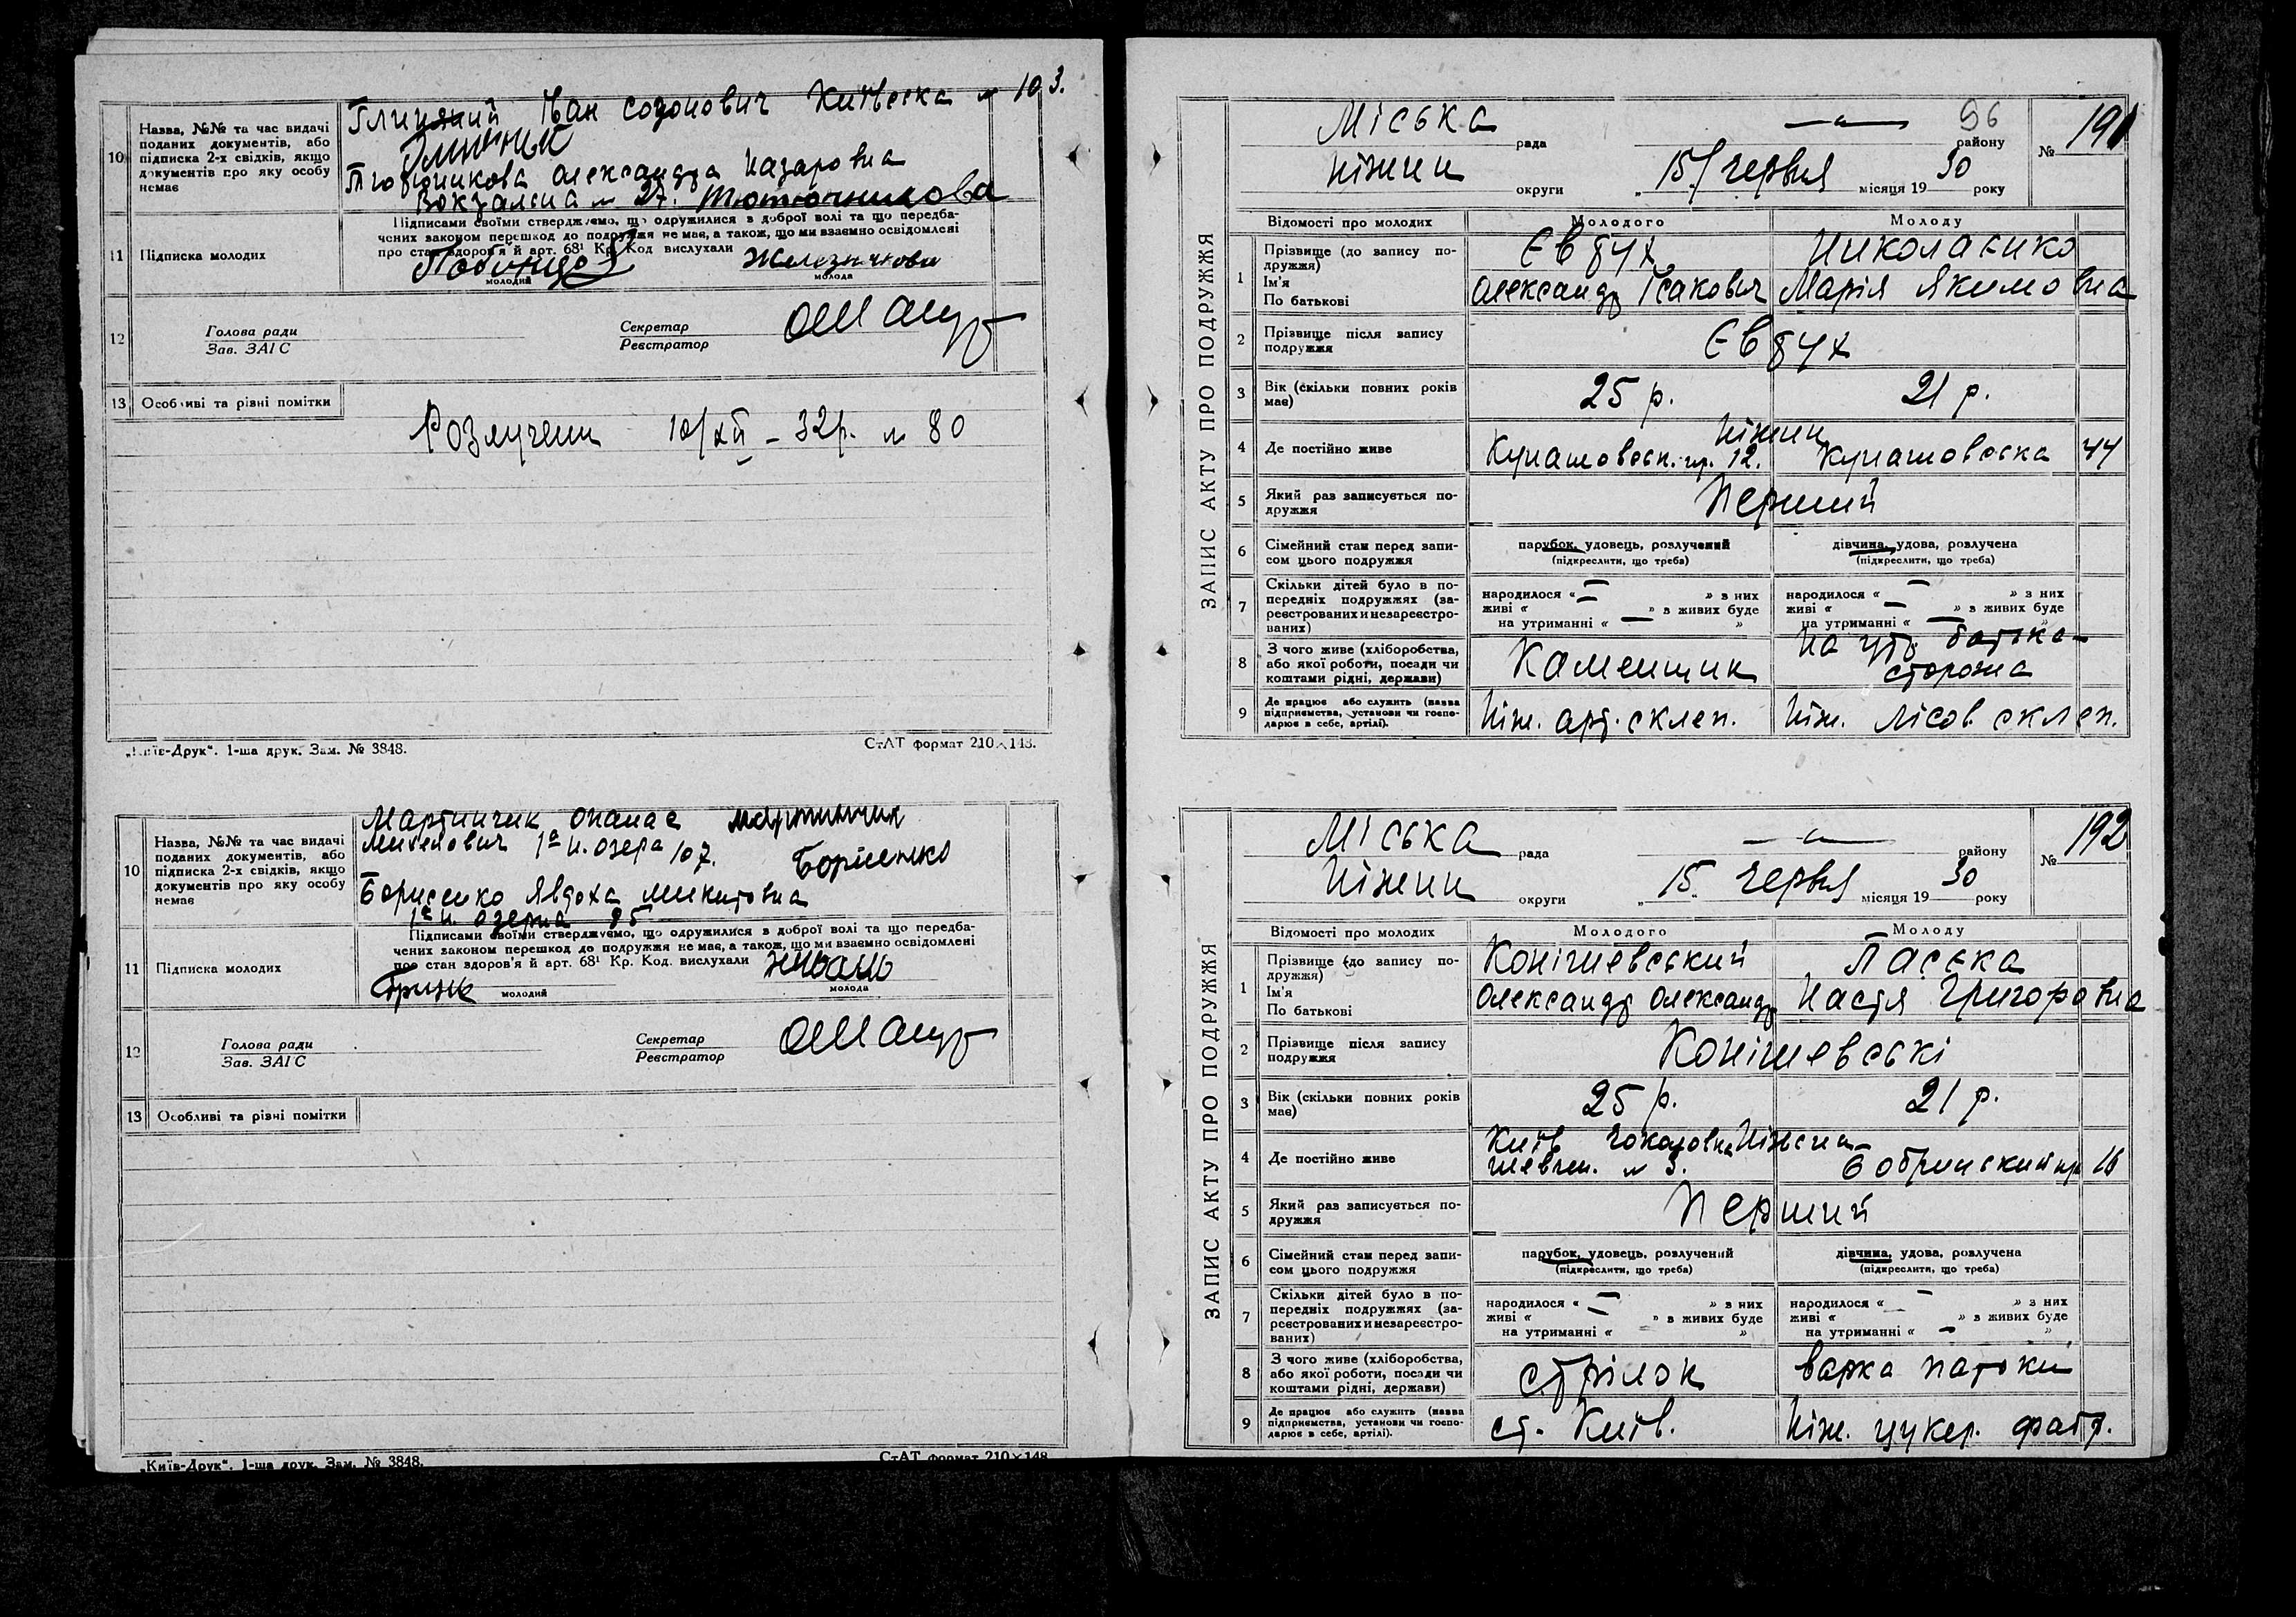 10
Назва, №№ та час видачі
поданих документів, або
підписка 2-х свідків, якщо
документів про яку особу
немає
Глиняний Іван Созонович Київська № 103.
Тютюникова Олександра Назаровна
Вокзална № 27. Тютюникова
11 Підписка молодих
Підписами своїми стверджуємо, що одружилися з доброї волі та що передба-
чених законом перешкод до подружжя не має, а також, що ми взаємно освідомлені
про стан здоров'я й арт. 68¹ Кр. Код вислухали
молодий
молода
12
Голова ради
Зав. ЗАГС
Секретар
Реєстратор
13 Особливі та рівні помітки
Розлучени 10/XII – 32р. № 80
„Київ-Друк“. 1-ша друк. Зам. № 3848.
СтАТ формат 210×148.
10
Назва, №№ та час видачі
поданих документів, або
підписка 2-х свідків, якщо
документів про яку особу
немає
Мартинчик Опанас Мартинчик
1а н. озера 107.
Борисенко
Борисенко Явдоха Микитовна
1а н. озерна 85
11 Підписка молодих
Підписами своїми стверджуємо, що одружилися з доброї волі та що передба-
чених законом перешкод до подружжя не має, а також, що ми взаємно освідомлені
про стан здоров'я й арт. 68¹ Кр. Код. вислухали
молодий
молода
12
Голова ради
Зав. ЗАІС
Секретар
Реєстратор
13 Особливі та рівні помітки
„Київ-Друк“. 1-ша друк. Зам. № 3848.
СтАТ формат 210×148
ЗАПИС АКТУ ПРО ПОДРУЖЖЯ
Міська рада — району 96
№ 191
Ніжин округи „15/ червня місяця 1930 року
Відомості про молодих Молодого Молоду
1
Прізвище (до запису по-
дружжя)
Ім'я
По батькові
Євдух Николаенко
Олександр Ісакович Марія Якимовна
2
Прізвище після запису
подружжя
Євдух
3
Вік (скільки повних років
має)
25 р. 21 р.
4 Де постійно живе
Ніжин
Кунашовськ. пр. 12. Кунашовска 44
5
Який раз записується по-
дружжя
Перший
6
Сімейний стан перед запи-
сом цього подружжя
парубок, удовець, розлучений
(підкреслити, що треба)
дівчина, удова, розлучена
(підкреслити, що треба)
7
Скільки дітей було в по-
передніх подружжях (за-
реєстрованих и незареєстро-
ваних)
народилося « — » з них
живі « — » з живих буде
на утриманні « — »
народилося « — » з них
живі « — » з живих буде
на утриманні « — »
8
З чого живе (хліборобства,
або якої роботи, посади чи
коштами рідні, держави)
Каменщик
На утр. батька-
сторожа
9
Де працює або служить (назва
підприємства, установи чи госпо-
дарює в себе, артілі).
Ніж. арт. склеп. Ніж. лісов склеп.
ЗАПИС АКТУ ПРО ПОДРУЖЖЯ
Міська рада — району
№ 192
Ніжин округи „15“ червня місяця 1930 року
Відомості про молодих Молодого Молоду
1
Прізвище (до запису по-
дружжя)
Ім'я
По батькові
Конішевський Паська
Олександр Олександр Настя Григоровна
2
Прізвище після запису
подружжя
Конішевські
3
Вік (скільки повних років
має)
25 р. 21 р.
4 Де постійно живе
Київ
№ 3.
16
5
Який раз записується по-
дружжя
Перший
6
Сімейний стан перед запи-
сом цього подружжя
парубок, удовець, розлучений
(підкреслити, що треба)
дівчина, удова, розлучена
(підкреслити, що треба)
7
Скільки дітей було в по-
передніх подружжях (за-
реєстрованих и незареєстро-
ваних)
народилося « — » з них
живі « — » з живих буде
на утриманні « »
народилося « — » з них
живі « » з живих буде
на утриманні « — »
8
З чого живе (хліборобства,
або якої роботи, посади чи
коштами рідні, держави)
стрілок варка патоки
9
Де працює або служить (назва
підприємства, установи чи госпо-
дарює в себе, артілі).
ст. Київ. Ніж. цукер. фабр.